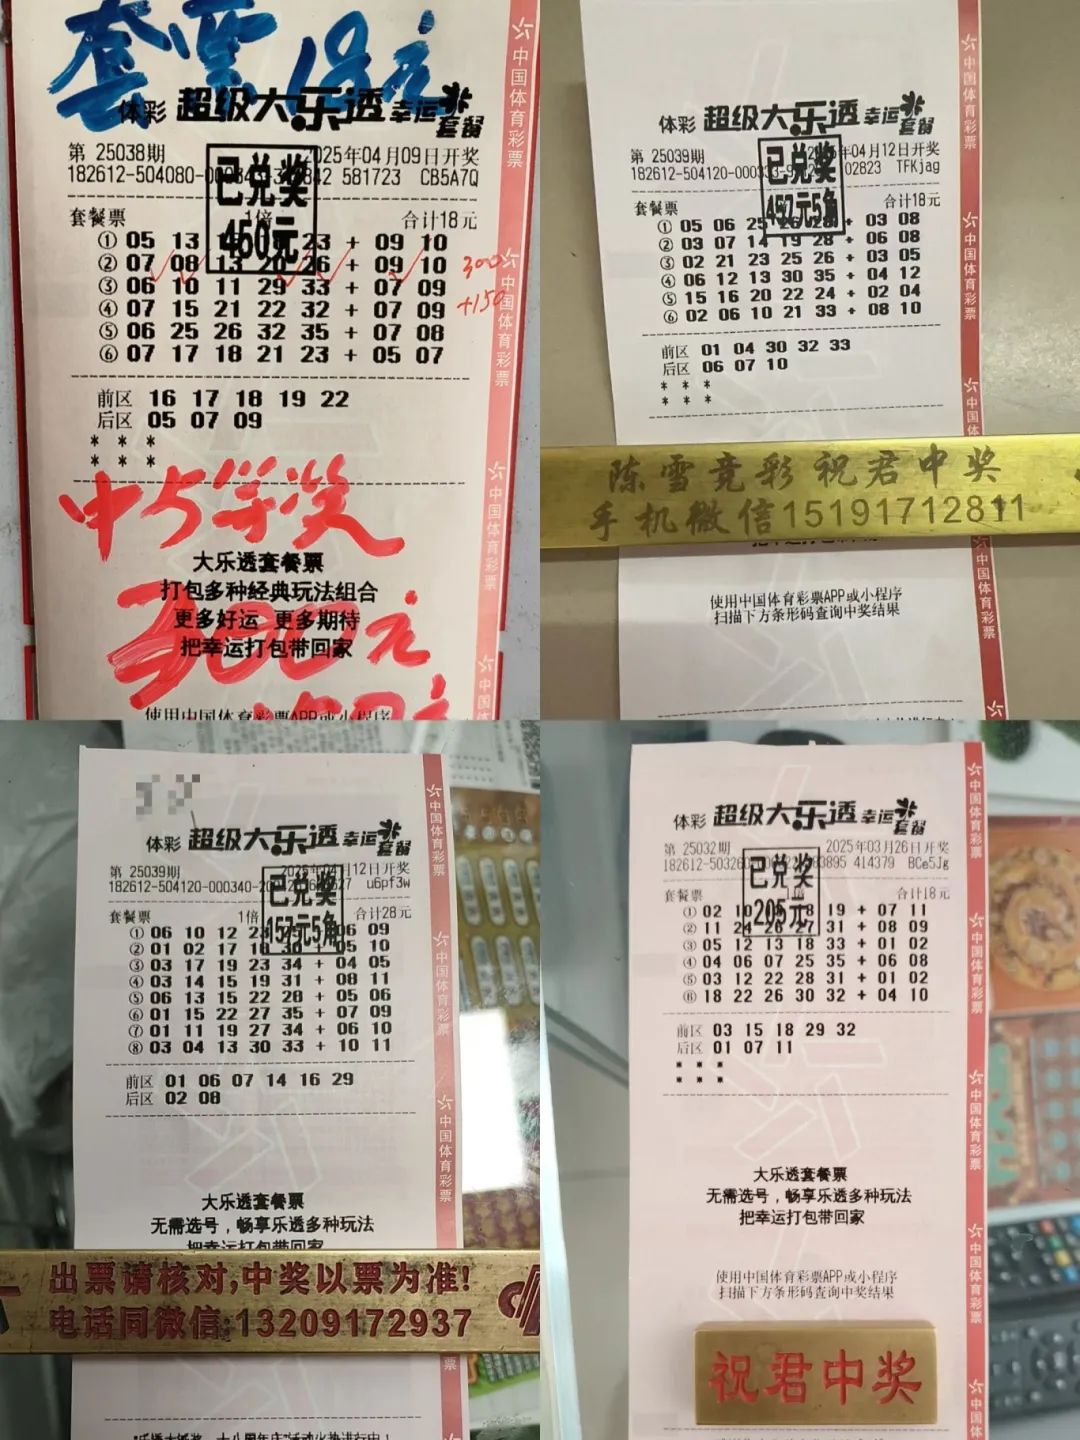 套票 18元
体彩 超级大乐透 幸运套餐
第 25038期 2025年04月09日开奖
已兑奖
450元
581723 CB5A7Q
套餐票 1倍 合计18元
① 05 13 23 + 09 10
② 07 08 13 20 26 + 09 10
③ 06 10 11 29 33 + 07 09
④ 07 15 21 22 32 + 07 09
⑤ 06 25 26 32 35 + 07 08
⑥ 07 17 18 21 23 + 05 07
300
+150
前区 16 17 18 19 22
后区 05 07 09
* * *
* * *
中5等奖
大乐透套餐票
打包多种经典玩法组合
更多好运 更多期待
把幸运打包带回家
300元
使用中国体育彩票APP或小程序
中国体育彩票
中国体育彩票
中国体育彩票
体彩 超级大乐透 幸运套餐
第 25039期 2025年04月12日开奖
已兑奖
457元5角
02823 TFKjag
套餐票 合计18元
① 05 06 25 26 28 + 03 08
② 03 07 14 19 28 + 06 08
③ 02 21 23 25 26 + 03 05
④ 06 12 13 30 35 + 04 12
⑤ 15 16 20 22 24 + 02 04
⑥ 02 06 10 21 33 + 08 10
前区 01 04 30 32 33
后区 06 07 10
* * *
* * *
陈雪竞彩 祝君中奖
手机微信15191712811
使用中国体育彩票APP或小程序
扫描下方条形码查询中奖结果
中国体育彩票
中国体育彩票
中国体育彩票
体彩 超级大乐透 幸运套餐
第 25039期 2025年04月12日开奖
已兑奖
157元5角
u6pf3w
套餐票 1倍 合计28元
① 06 10 12 23 + 06 09
② 01 02 17 18 30 + 05 10
③ 03 17 19 23 34 + 04 05
④ 03 14 15 19 31 + 08 11
⑤ 06 13 15 22 28 + 05 06
⑥ 01 15 22 27 35 + 07 09
⑦ 01 11 19 27 34 + 06 10
⑧ 03 04 13 30 33 + 10 11
前区 01 06 07 14 16 29
后区 02 08
大乐透套餐票
无需选号，畅享乐透多种玩法
把幸运打包带回家
出票请核对,中奖以票为准!
电话同微信:13209172937
中国体育彩票
中国体育彩票
中国体育彩票
体彩 超级大乐透 幸运套餐
第 25032期 2025年03月26日开奖
已兑奖
205元
414379 BCe5Jg
套餐票 1倍 合计18元
① 02 10 18 19 + 07 11
② 11 24 26 27 31 + 08 09
③ 05 12 13 18 33 + 01 02
④ 04 06 07 25 35 + 06 08
⑤ 03 12 22 28 31 + 01 02
⑥ 18 22 26 30 32 + 04 10
前区 03 15 18 29 32
后区 01 07 11
* * *
* * *
大乐透套餐票
无需选号，畅享乐透多种玩法
把幸运打包带回家
使用中国体育彩票APP或小程序
扫描下方条形码查询中奖结果
祝君中奖
中国体育彩票
中国体育彩票
中国体育彩票
中国体育彩票